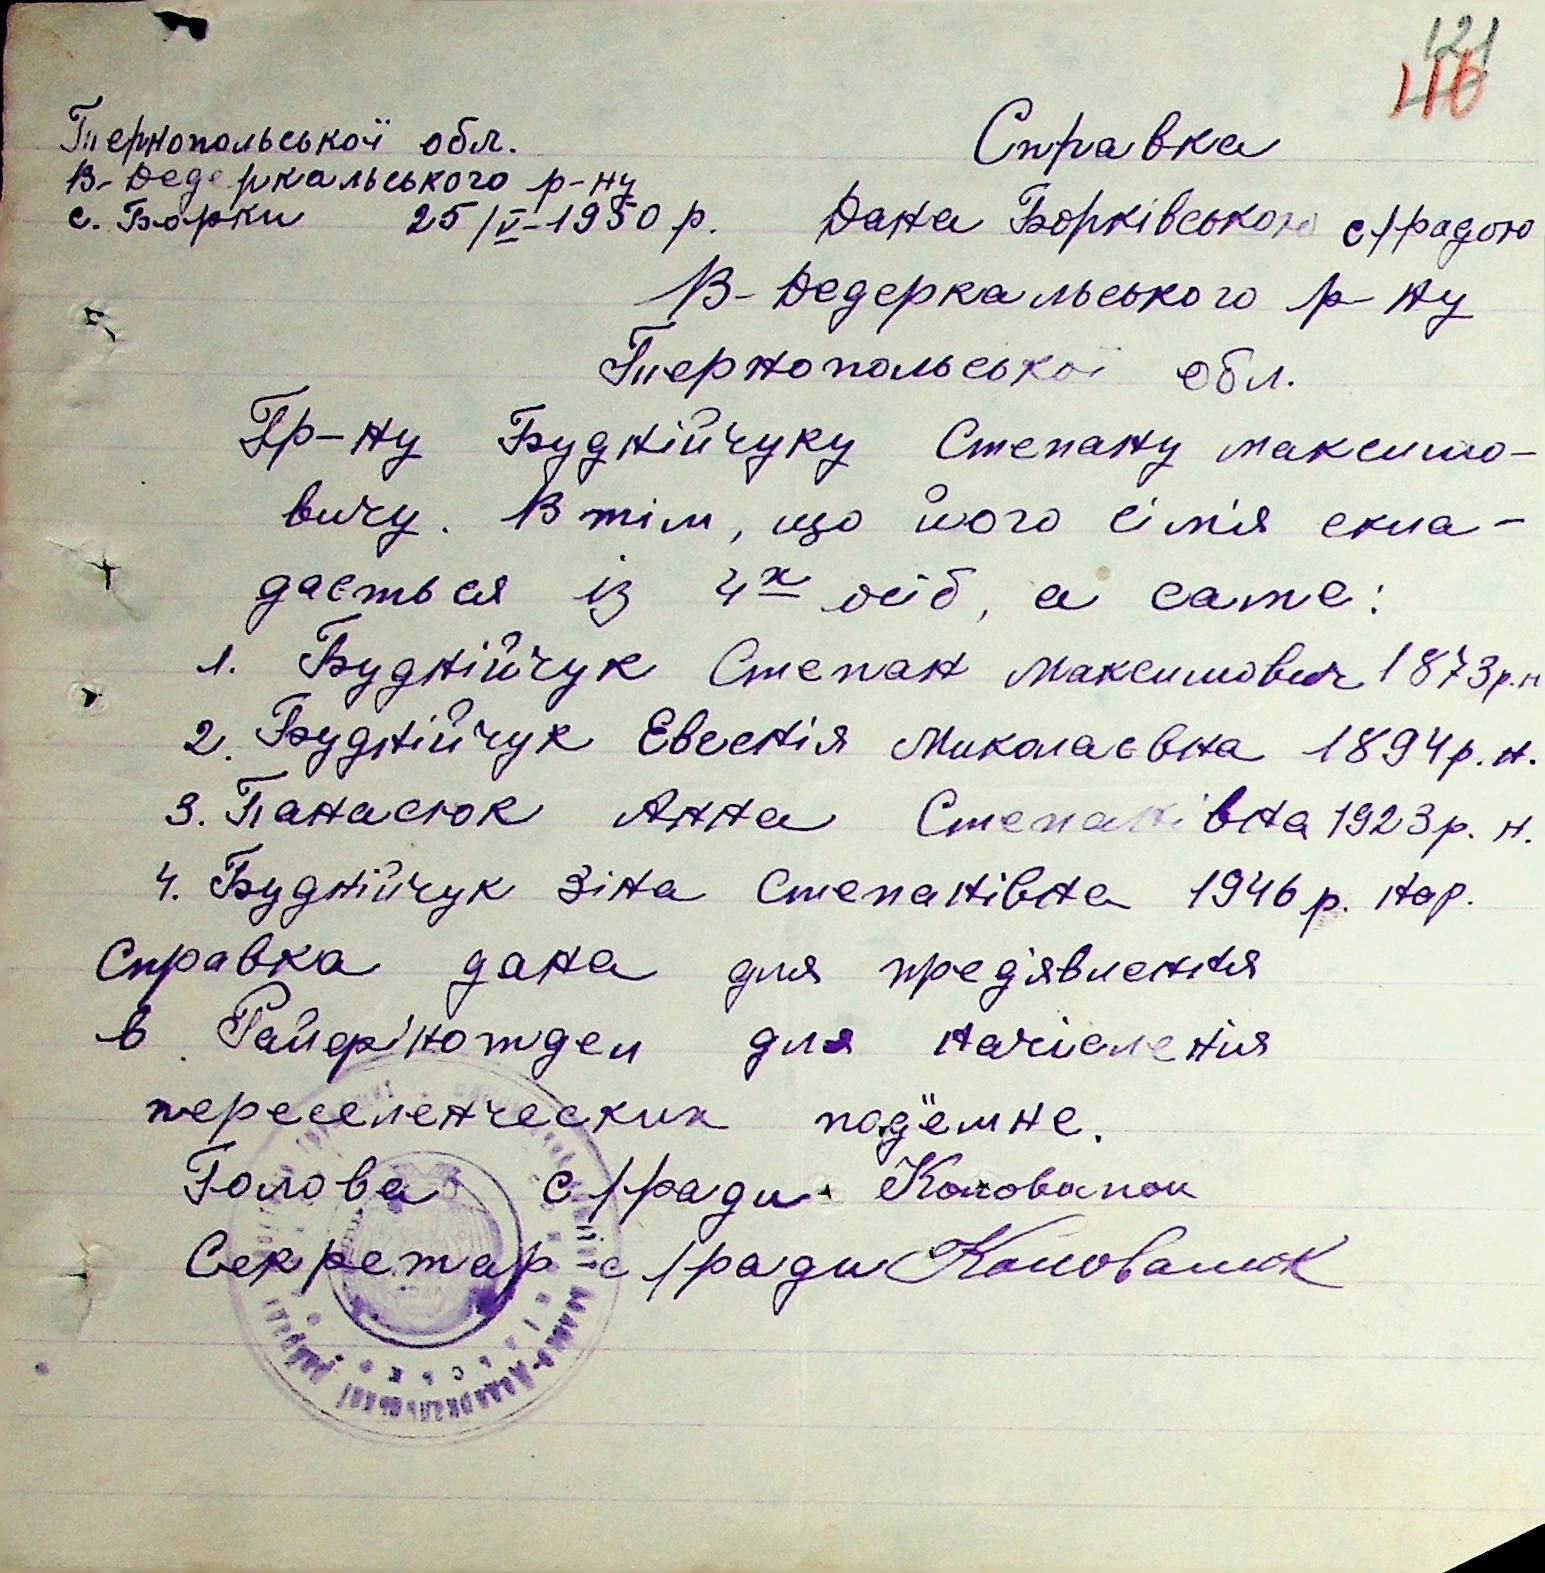 121
46
Тернопольської обл.
В-Дедеркальського р-ну
с. Борки 25/V-1950 р.
Справка
Дана Борківською с/радою
В-Дедеркальського р-ну
Тернопольської обл.
Гр-ну Буднійчуку Степану Максимо-
вичу. В тім, що його сім'я скла-
дається із 4х осіб, а саме:
1. Буднійчук Степан Максимович 1873 р.н
2. Буднійчук Евсенія Миколаєвна 1894 р. н.
3. Панасюк Анна Степанівна 1923 р. н.
4. Буднійчук Зіна Степанівна 1946 р. нар.
Справка дана для пред'явлення
в Райфінотдел для начісленія
переселенческих под'ємне.
Голова с/ради
Секретар с/ради Коновалюк